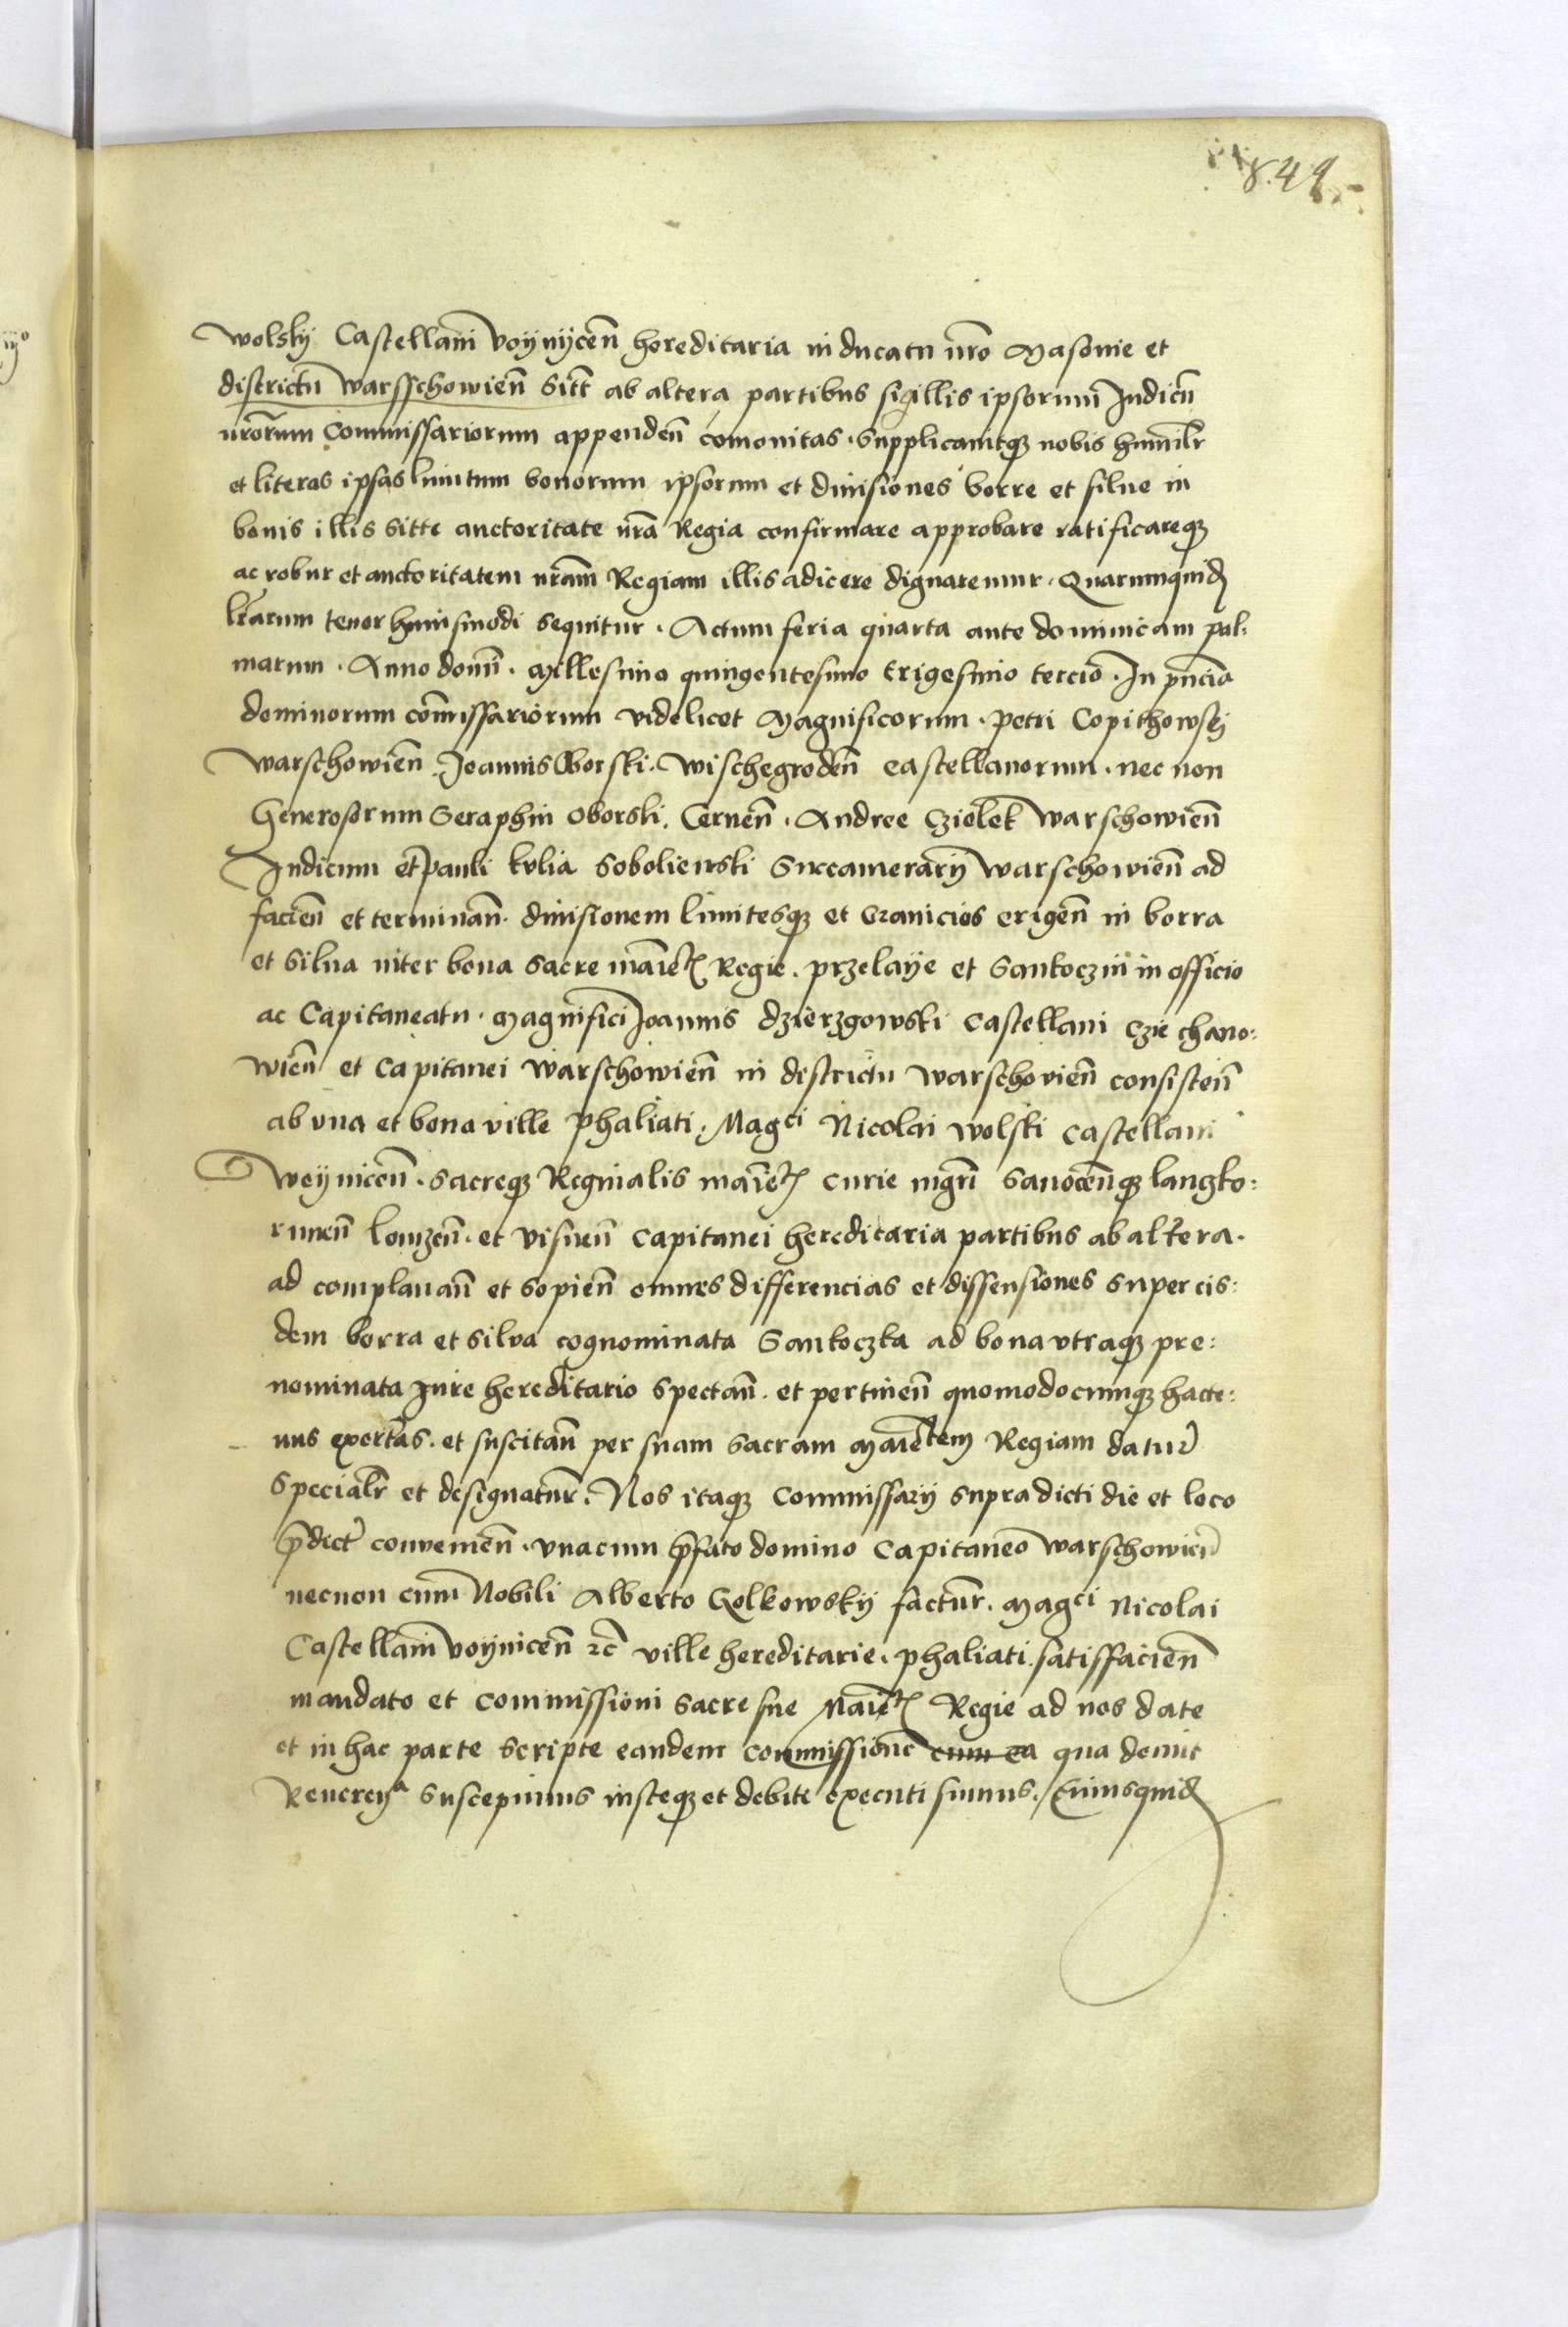 849
wolsky Castellani voynycen̄ hereditaria in ducatu nr̄o Masovie et
districtu warsschowien̄ sitt̄ ab altera partibus sigillis ipsorum Iudicū
nr̄orum Commissariorum appenden̄ comonitas. Supplicavitqꝫ nobis humilr̄
et literas ipsas limitum bonorum ipsorum et divisiones borre et silve in
bonis illis sitte auctoritate nr̄a Regia confirmare approbare ratificareqꝫ
ac robur et auctoritatem nr̄am Regiam illis adicere dignaremur. Quarumquidꝫ
lr̄arum tenor huiusmodi sequitur. Actum feria quarta ante dominicam pal:
marum. Anno domī. Millesimo quingentesimo trigesimo tercio. In pn̄cia
dominorum com̄issariorum videlicet Magnificorum. petri Copithowsky
warschowien̄ Joannis Oborski. wischegroden̄ castellanorum. nec non
Generosorum Seraphin Oborski. Cernen̄. Andree Cziolek warschowien̄
Iudicum et Pauli kulia Soboliewski Succamerarij warschowien̄ ad
facien̄ et terminan̄. divisionem limitesqꝫ et Granicies erigen̄ in borra
et silva inter bona Sacre maiet̄ Regie. przelaye et Santoczin in officio
ac Capitaneatu. Magnifici Joannis dzierzgowski Castellani Cziechano:
wien̄ et Capitanei warschowien̄ in districtu warschovien̄ consisten̄
ab una et bona ville phaliati. Magci Nicolai wolski Castellani
woynicen̄. Sacreqꝫ Reginalis maiet̄ curie mgr̄i Sanocen̄qꝫ langko:
runen̄ lomzen̄. et visnen̄ Capitanei hereditaria partibus ab altera.
ad complanan̄ et sopien̄ omnes differencias et dissensiones super eis:
dem borra et silva cognominata Santoczka ad bona utraqꝫ pre:
nominata Iure hereditario spectan̄. et pertinen̄ quomodocumqꝫ hacte:
nus exortas. et suscitan̄ per suam sacram Maietem Regiam datur̄
specialr̄ et designatur̄. Nos itaqꝫ Commissarij supradicti die et loco
p̄dict̄ convenien̄. unacum p̄fato domino Capitaneo warschowien̄
necnon cum Nobili Alberto Golkowsky factur̄. Magci Nicolai
Castellani voynicen̄ ꝛc̄ ville hereditarie. phaliati. satisfacien̄
mandato et commissioni sacre sue Maiet̄ Regie ad nos date
et in hac parte scripte eandem commissione cum ea qua decuit
Reverenᵃ suscepimus iusteqꝫ et debite executi sumus. Cuiusquidꝫ